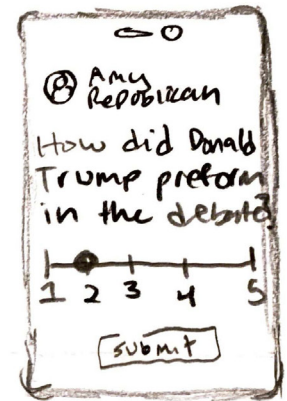 Amy
Repoblican
How did Donald
Trump preform
in the debate?
1 2 3 4 5
submit